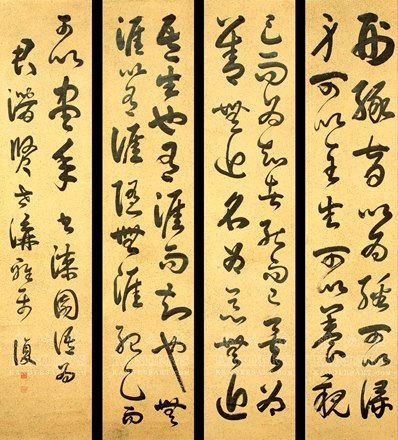 刑緣督以為經可以保
身可以全生可以養親
已而為知者殆而已矣為
善無近名為惡無近
吾生也有涯而知也無
涯以有涯隨無涯殆已而
可以盡年 書漆園語為
君潛賢世講雅屬 復